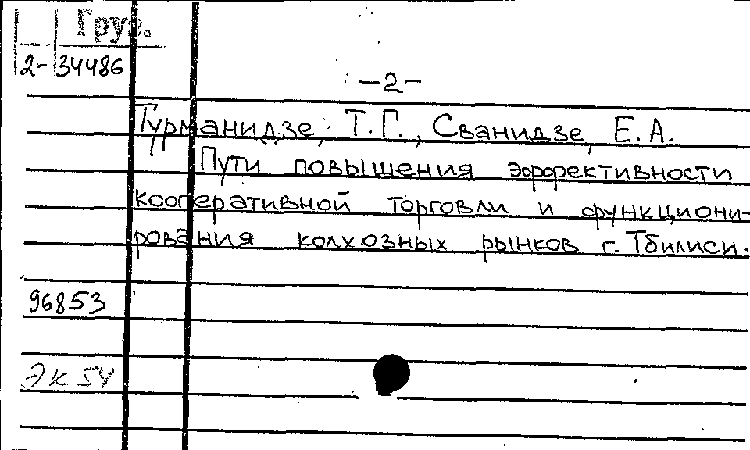 Груз.
2-34486
-2-
Турманидзе, Т.Г., Сванидзе, Е.А.
Пути повышения эффективности
кооперативной торговли и функциони-
рования колхозных рынков г. Тбилиси.
96853
ЭК 54